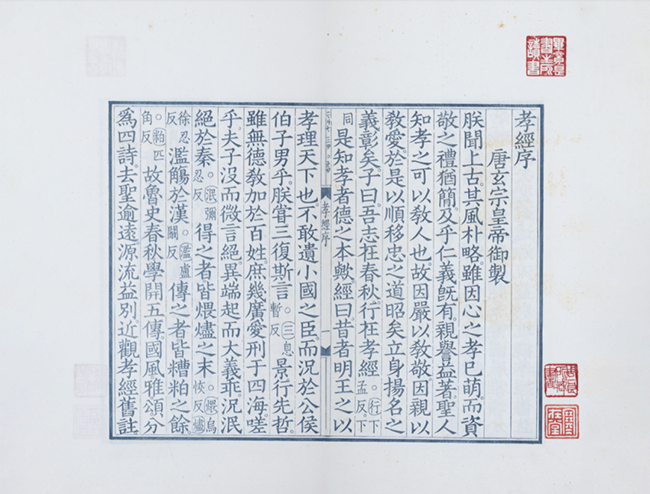 孝經序
唐玄宗皇帝御製
朕聞上古其風朴略雖因心之孝已萌而資
敬之禮猶簡及乎仁義旣有親譽益著聖人
知孝之可以敎人也故因嚴以敎敬因親以
敎愛於是以順移忠之道昭矣立身揚名之
義彰矣子曰吾志在春秋行在孝經。行下孟反下
同是知孝者德之本歟經曰昔者明王之以
孝經序 一
孝理天下也不敢遺小國之臣而況於公侯
伯子男乎朕嘗三復斯言。三息暫反景行先哲
雖無德敎加於百姓庶幾廣愛刑于四海嗟
乎夫子沒而微言絕異端起而大義乖況泯
絕於秦。泯彌忍反得之者皆煨燼之末。煨烏恢反燼
徐忍反濫觴於漢。濫盧闞反傳之者皆糟粕之餘
。粕匹角反故魯史春秋學開五傳國風雅頌分
爲四詩去聖逾遠源流益別近觀孝經舊註